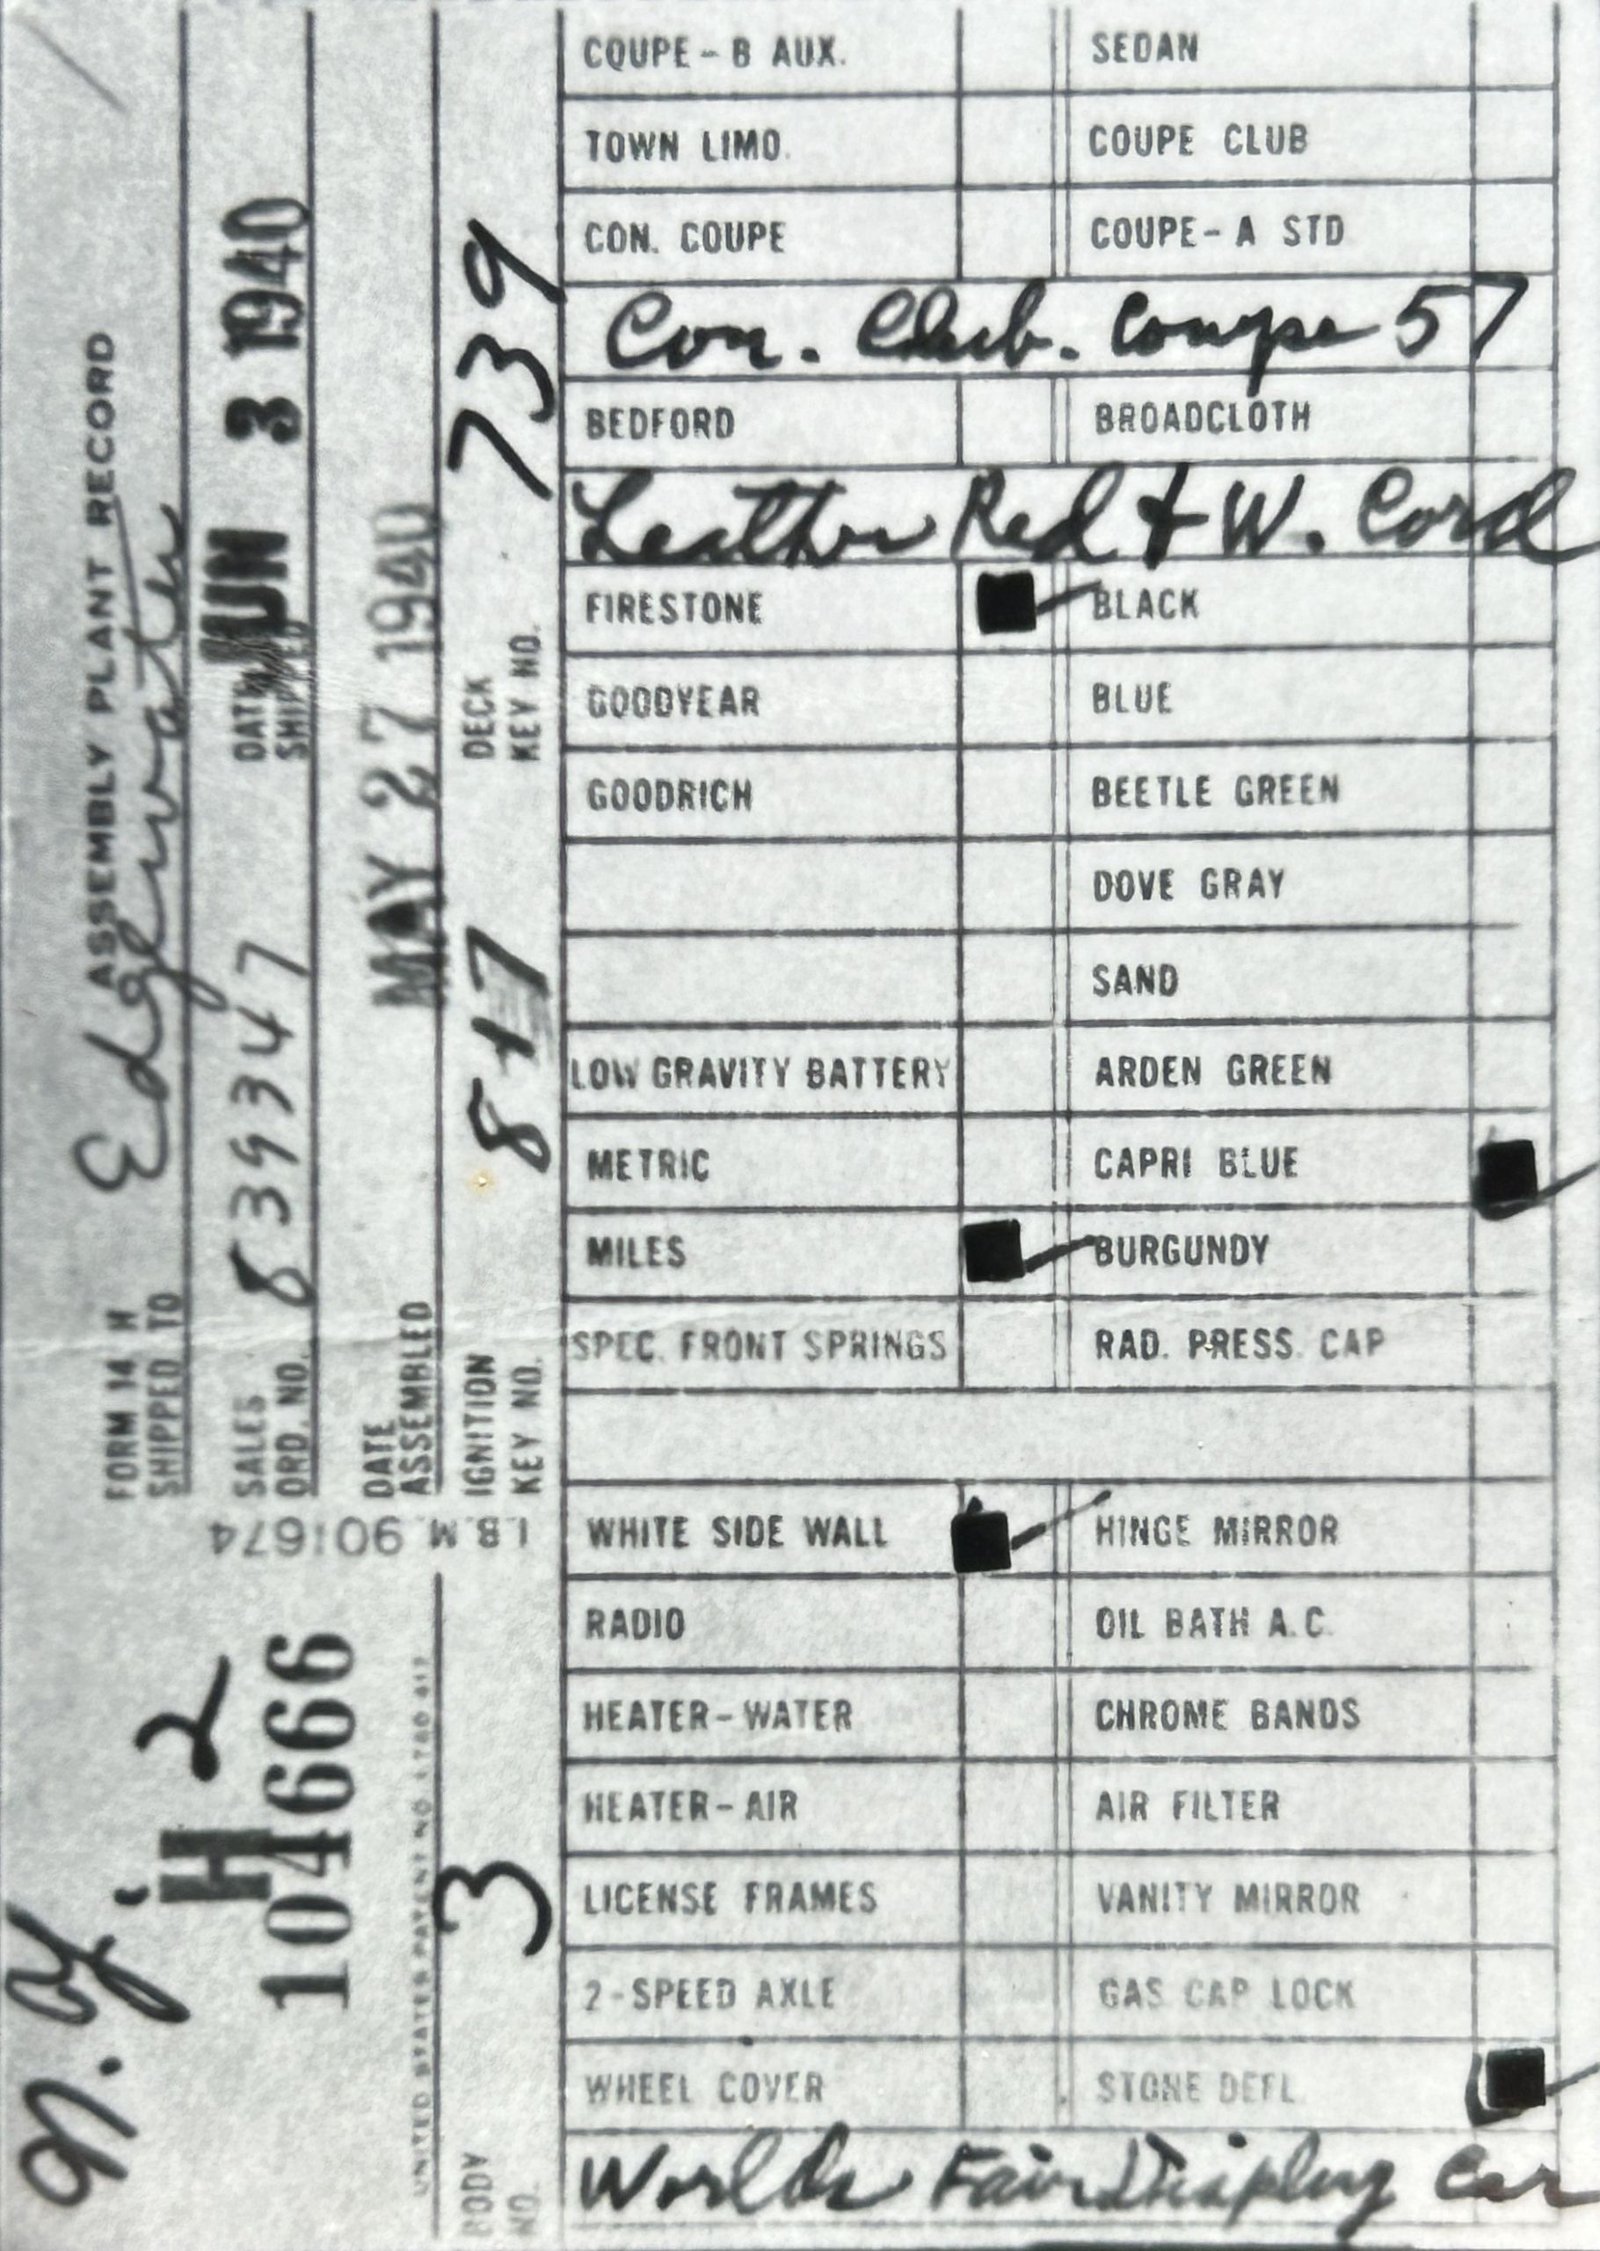 N. Y.
H 2
104666
I.B.M. 901674
FORM 14 H ASSEMBLY PLANT RECORD
SHIPPED TO Edgewater
SALES ORD. NO. 839347 DATE SHIPPED JUN 3 1940
DATE ASSEMBLED MAY 27 1940
IGNITION KEY NO. 817 DECK KEY NO. 739
UNITED STATES PATENT NO.
BODY NO. 3
COUPE - B AUX. SEDAN
TOWN LIMO. COUPE CLUB
CON. COUPE COUPE - A STD
Con. Club. Coupe 57
BEDFORD BROADCLOTH
Leather Red + W. Cord
FIRESTONE BLACK
GOODYEAR BLUE
GOODRICH BEETLE GREEN
DOVE GRAY
SAND
LOW GRAVITY BATTERY ARDEN GREEN
METRIC CAPRI BLUE
MILES BURGUNDY
SPEC. FRONT SPRINGS RAD. PRESS. CAP
WHITE SIDE WALL HINGE MIRROR
RADIO OIL BATH A.C.
HEATER - WATER CHROME BANDS
HEATER - AIR AIR FILTER
LICENSE FRAMES VANITY MIRROR
2 - SPEED AXLE GAS CAP LOCK
WHEEL COVER STONE DEFL.
Worlds Fair Display Car